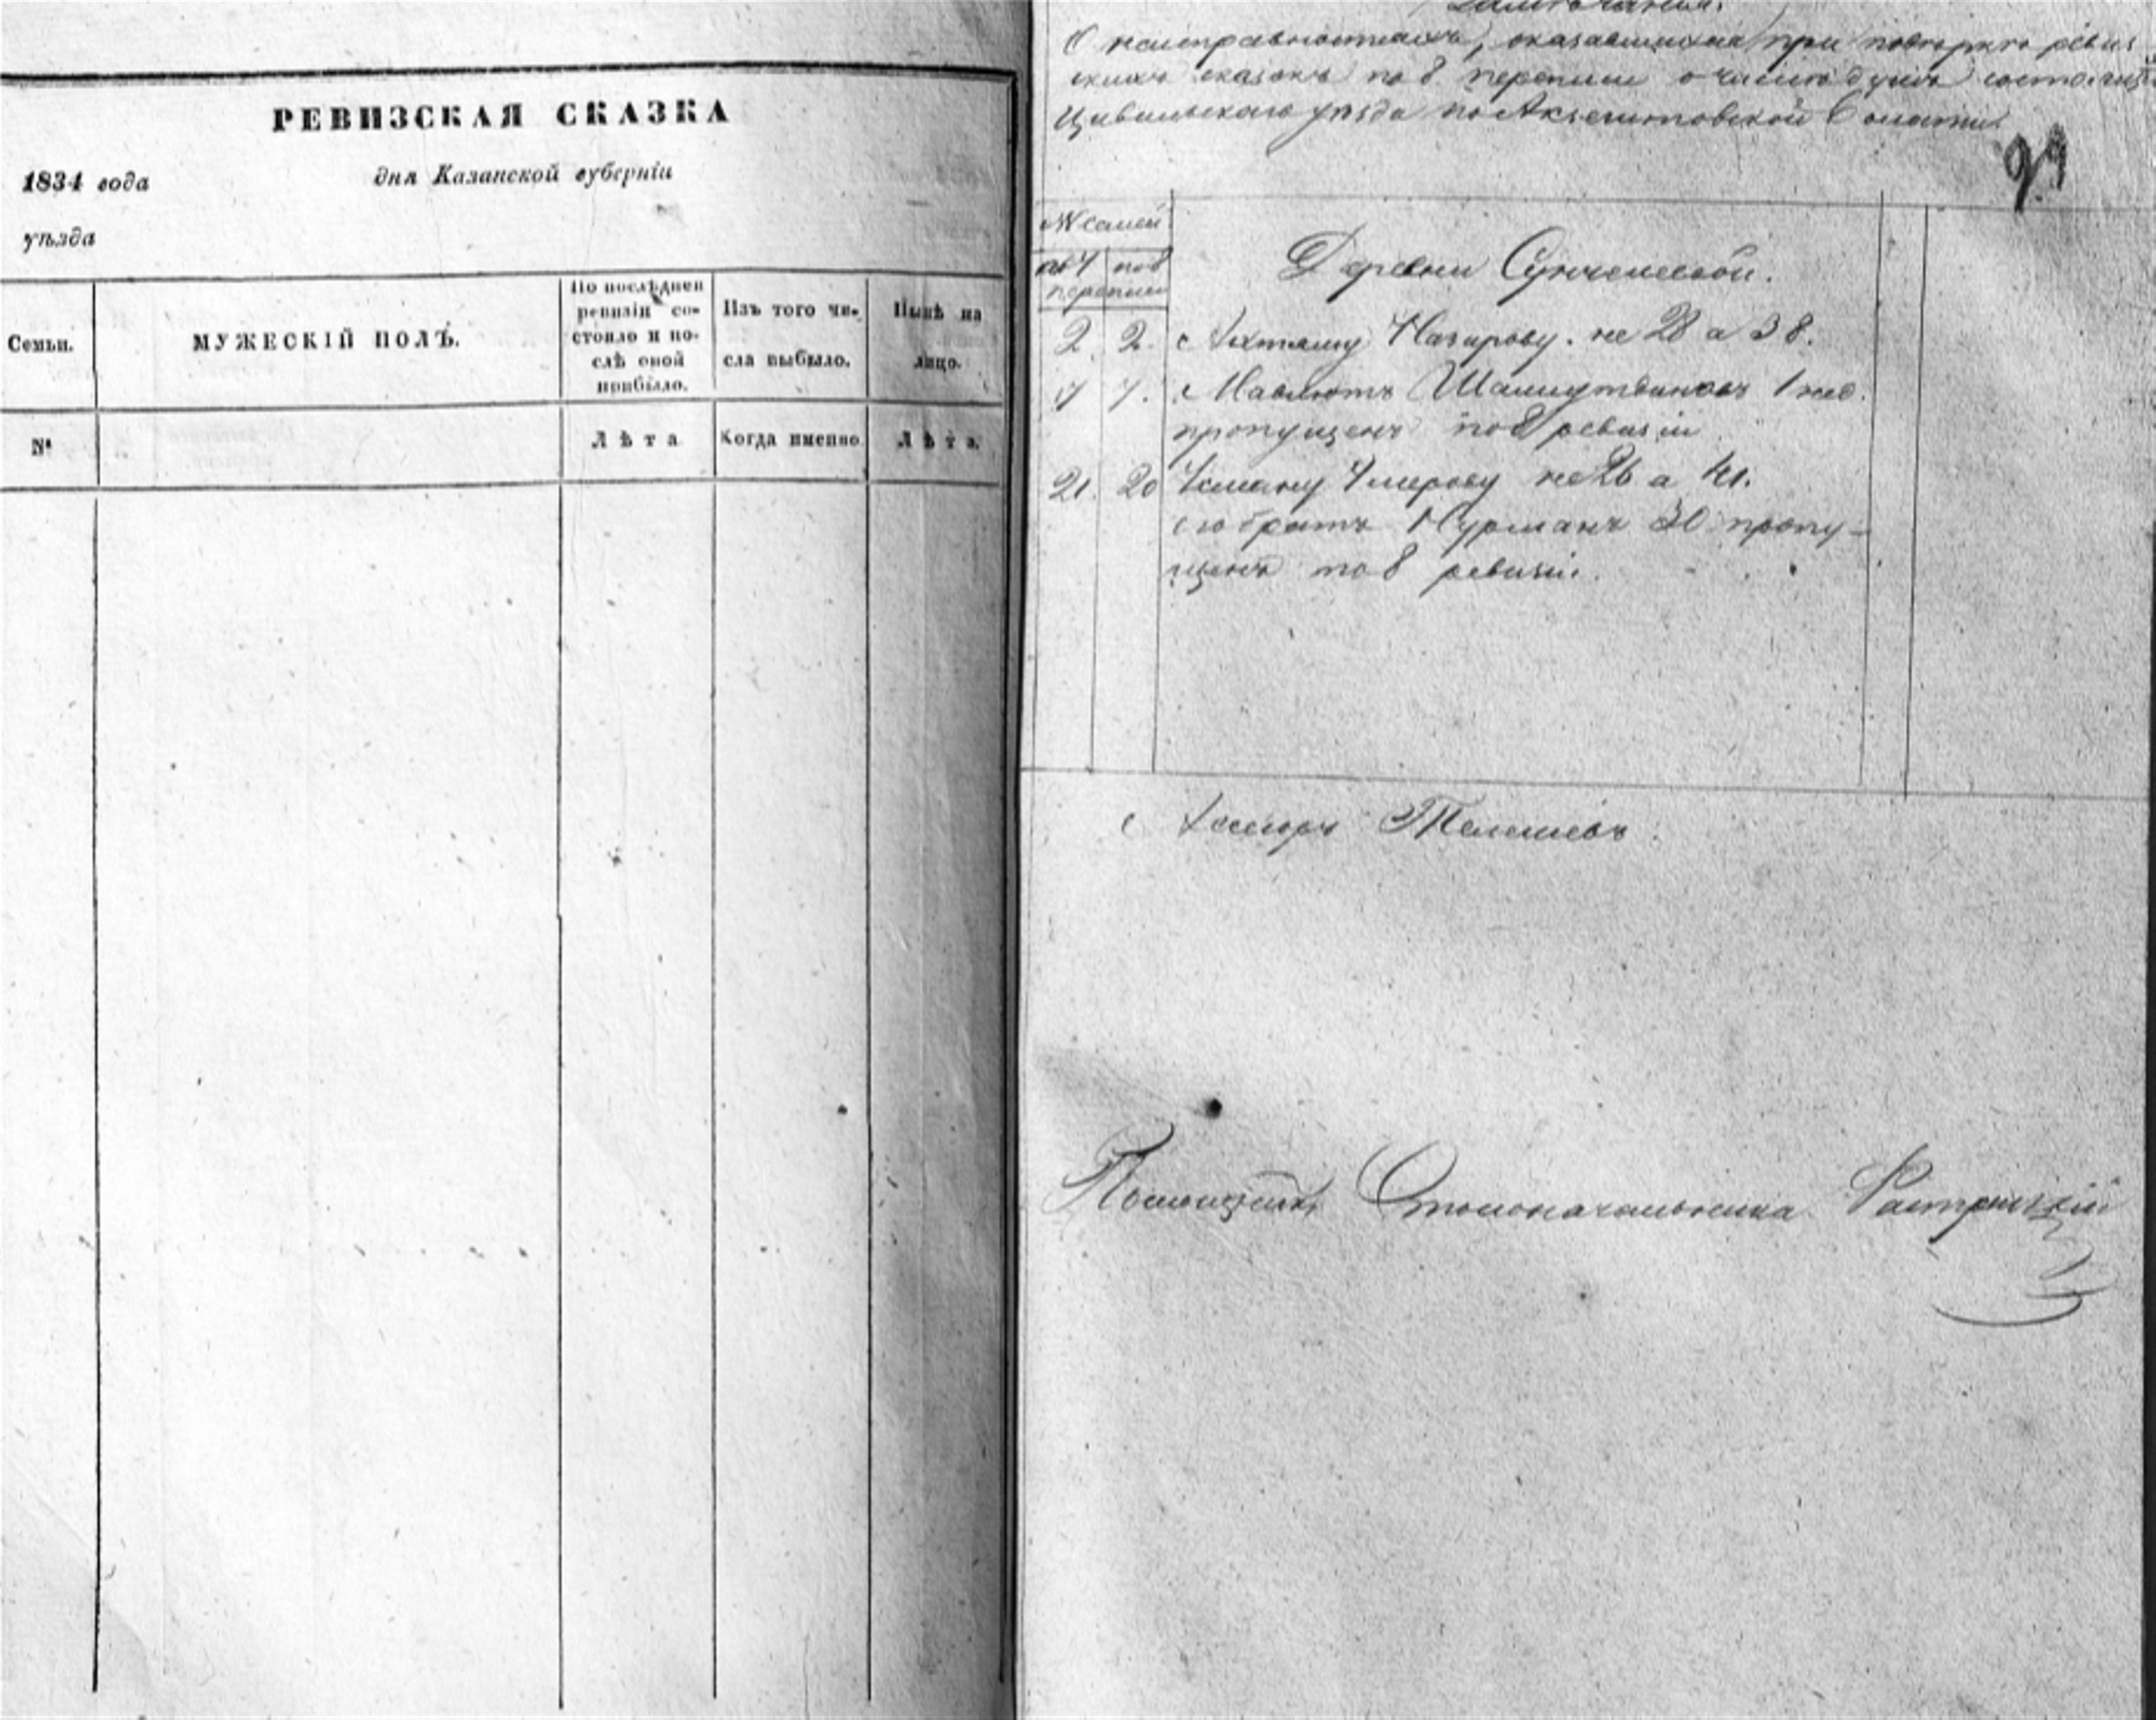 РЕВИЗСКАЯ СКАЗКА
1834 года дня Казанской губерніи
уѣзда
Семьи.
МУЖЕСКІЙ ПОЛЪ.
По послѣдней
ревизіи со-
стояло и по-
слѣ оной
прибыло.
Изъ того чи-
сла выбыло.
Нынѣ на
лицо.
№
Лѣта
Когда именно
Лѣта.
Замѣчанія.
О неисправностяхъ, оказавшихся при повѣркѣ ревиз
скихъ сказокъ по 8 переписи о числѣ душъ
Цивильскаго уѣзда по Волости
99
№ семей
по 7 по 8
переписи
Деревни
2. 2. Назирову. не 28 а 38.
7 7. Мавлютъ 1 нед.
пропущенъ по 8 ревизіи
21. 20 Усману Умерову не 26 а 41.
его братъ Нурманъ 30 пропу-
щенъ по 8 ревизіи.
Помощникъ Столоначальника